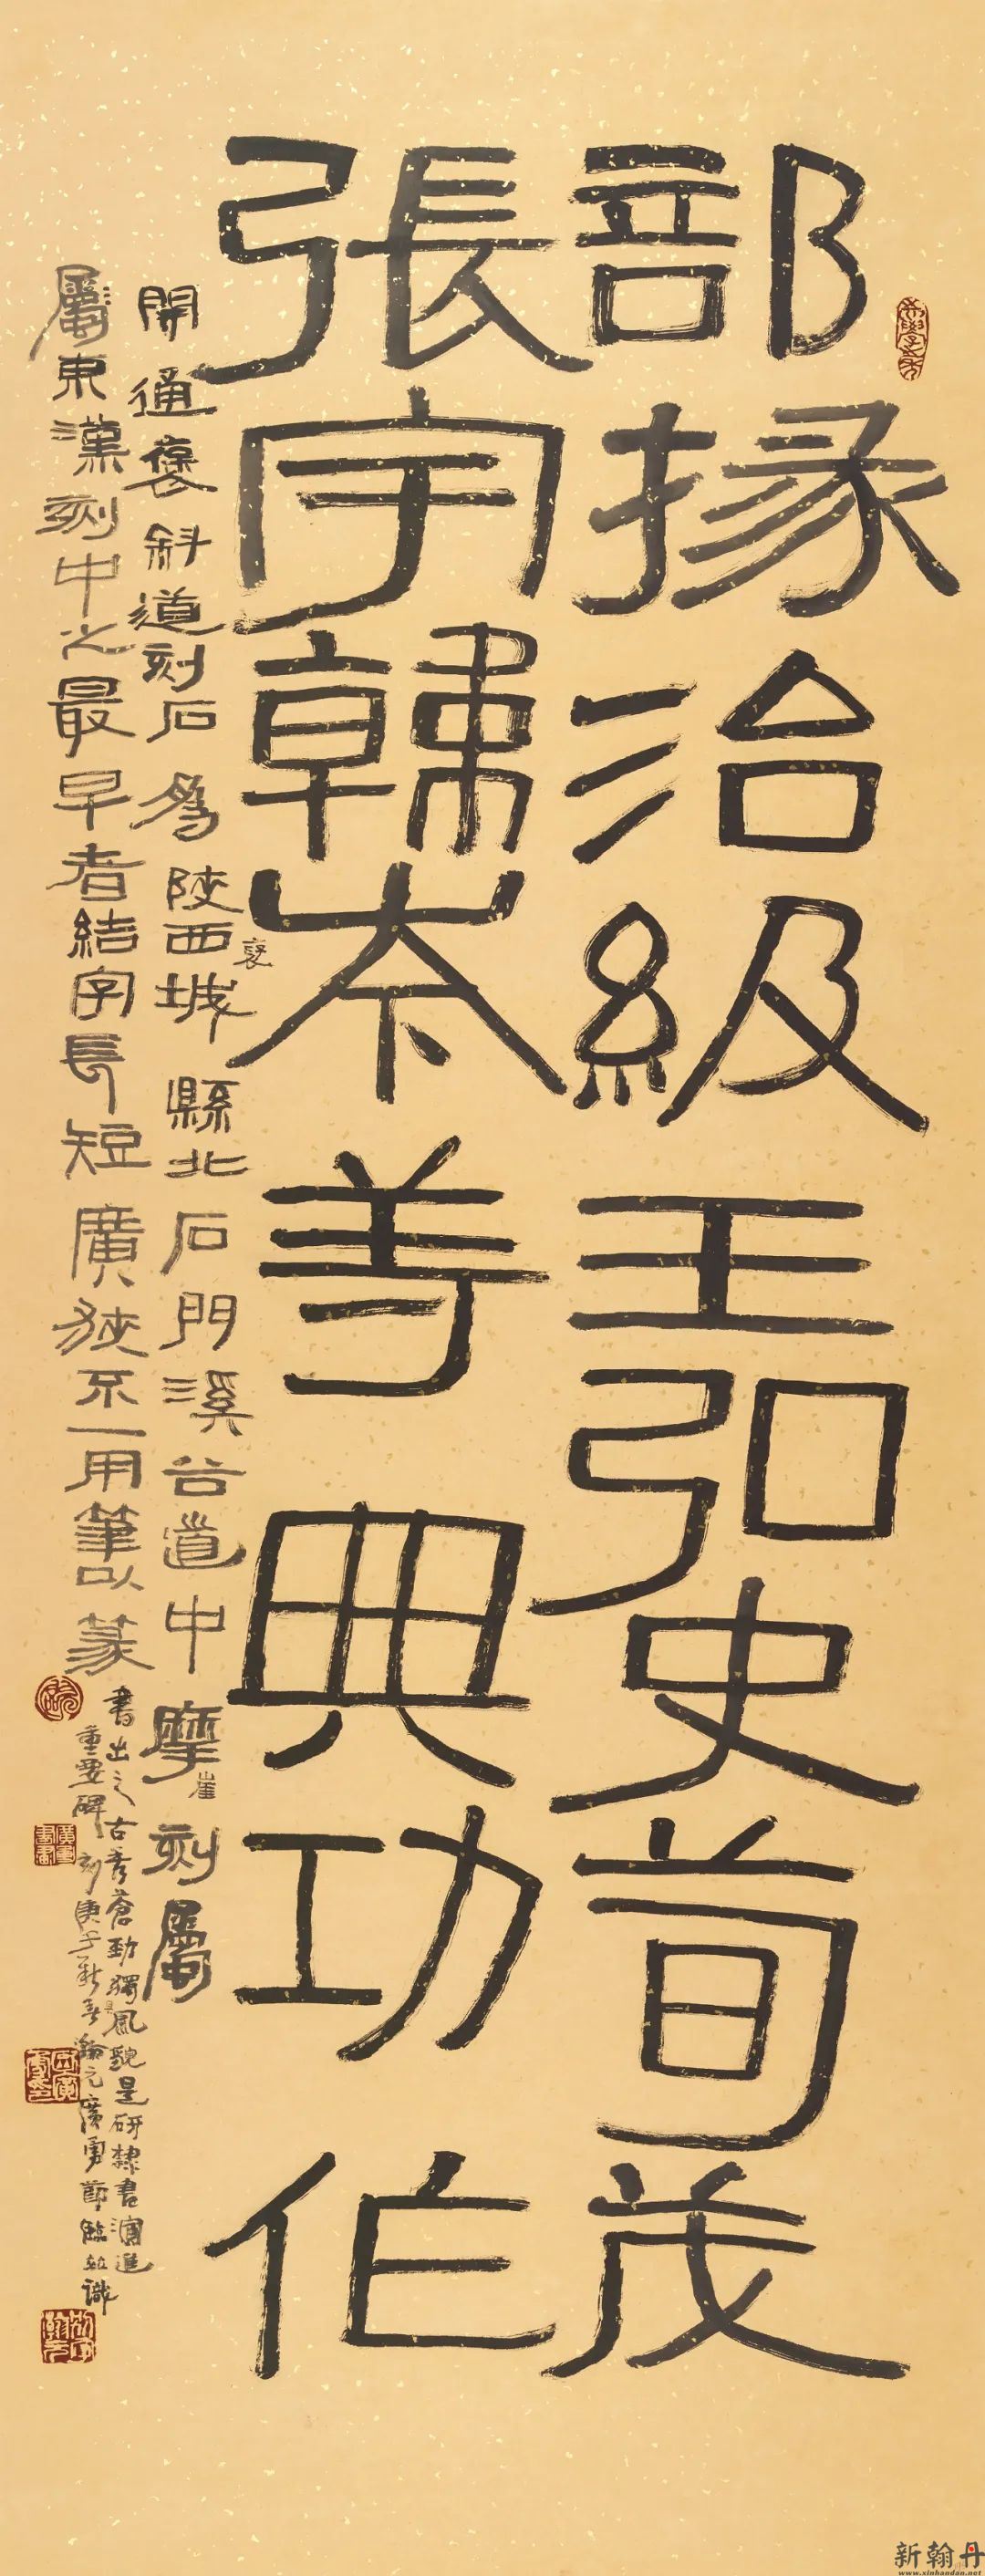 部掾治級王弘史荀茂
張宇韓岑善典功作
開通褒斜道刻石為陝西褒城縣北石門溪谷道中摩崖刻屬
屬東漢刻中之最早者結字長短廣狹不一用筆以篆
書出之古秀蒼勁獨具風貌是研隸書演進
重要碑刻庚子新春瀚元廣勇節臨並識
新翰丹
www.xinhandan.net